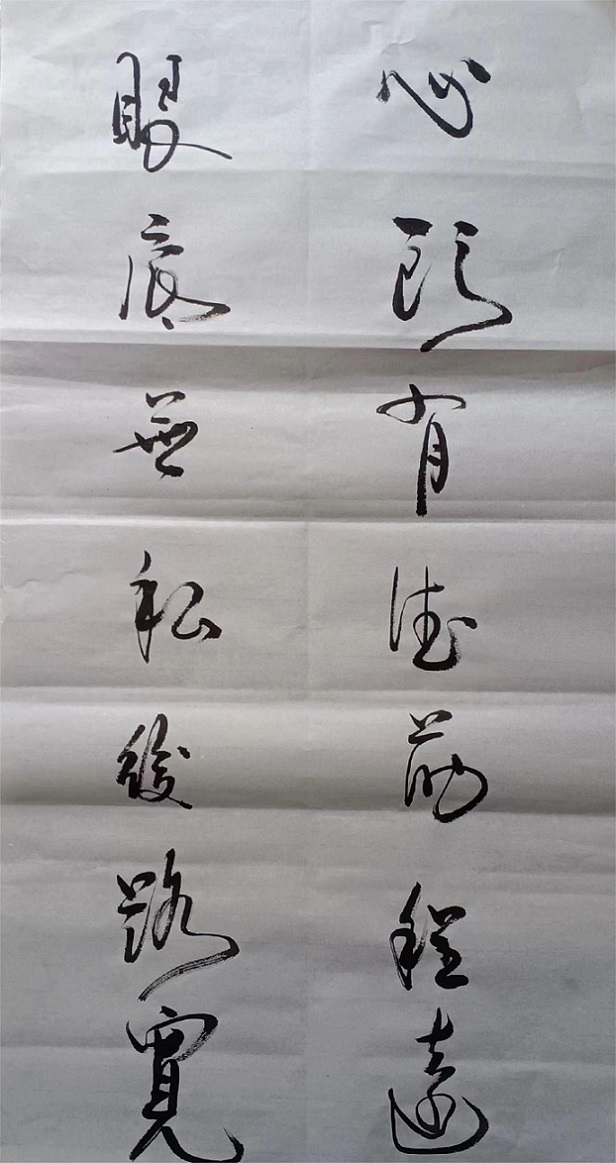 心頭有德前程遠
眼底無私後路寬